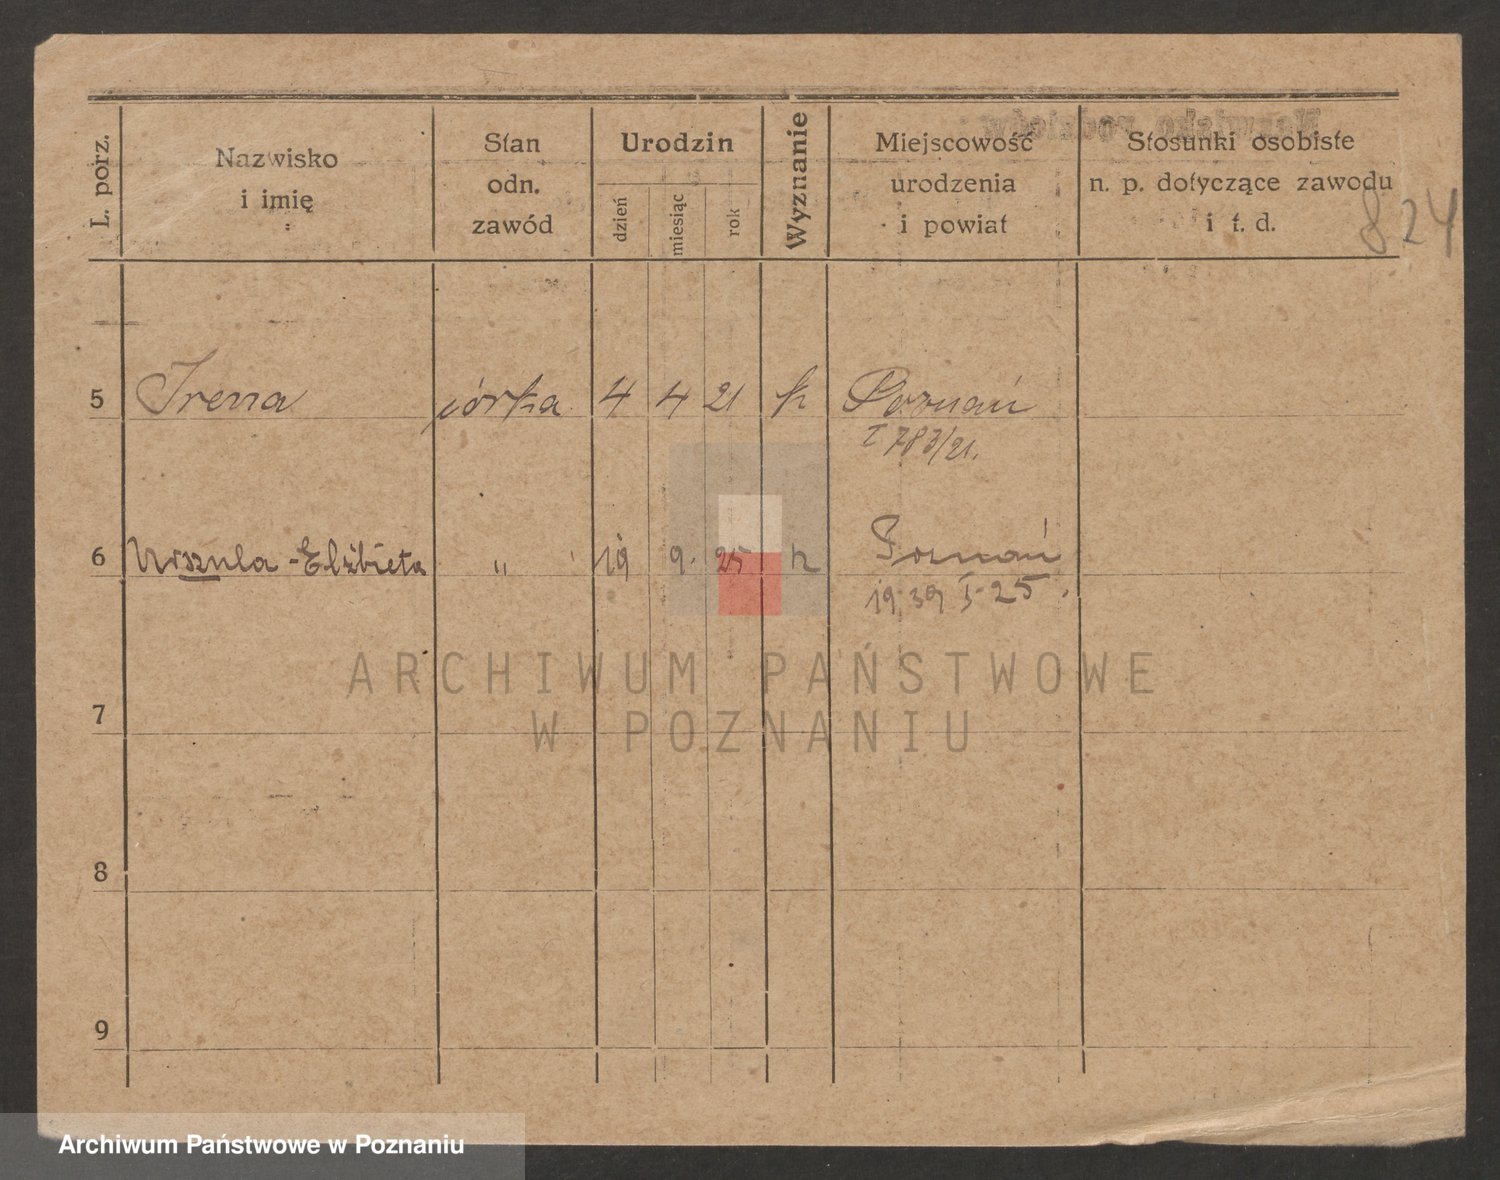 L. porz.
Nazwisko
i imię
Stan
odn.
zawód
Urodzin
dzień
miesiąc
rok
Wyznanie
Miejscowość
urodzenia
i powiat
Stosunki osobiste
n. p. dotyczące zawodu
i t. d.
824
5 Irena córka 4 4 21 k Poznań
I 783/21.
6 Urszula-Elżbieta " 19 9. 25 k Poznań
1939 I 25.
ARCHIWUM PAŃSTWOWE
W POZNANIU
7
8
9
Archiwum Państwowe w Poznaniu